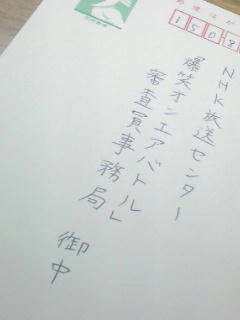 郵便はが
1508
NHK放送センター
爆笑オンエアバトル」
審査員事務局
御中